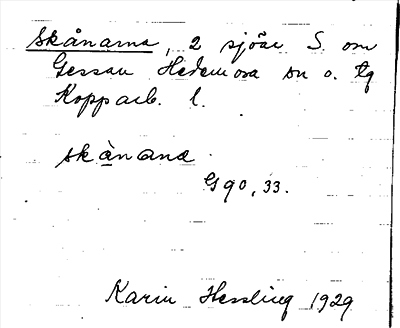 Skånarna, 2 sjöar S. om
Gessån Hedemora sn o. tg
Kopparb. l.
skånana
G 90, 33.
Karin Hessling 1929